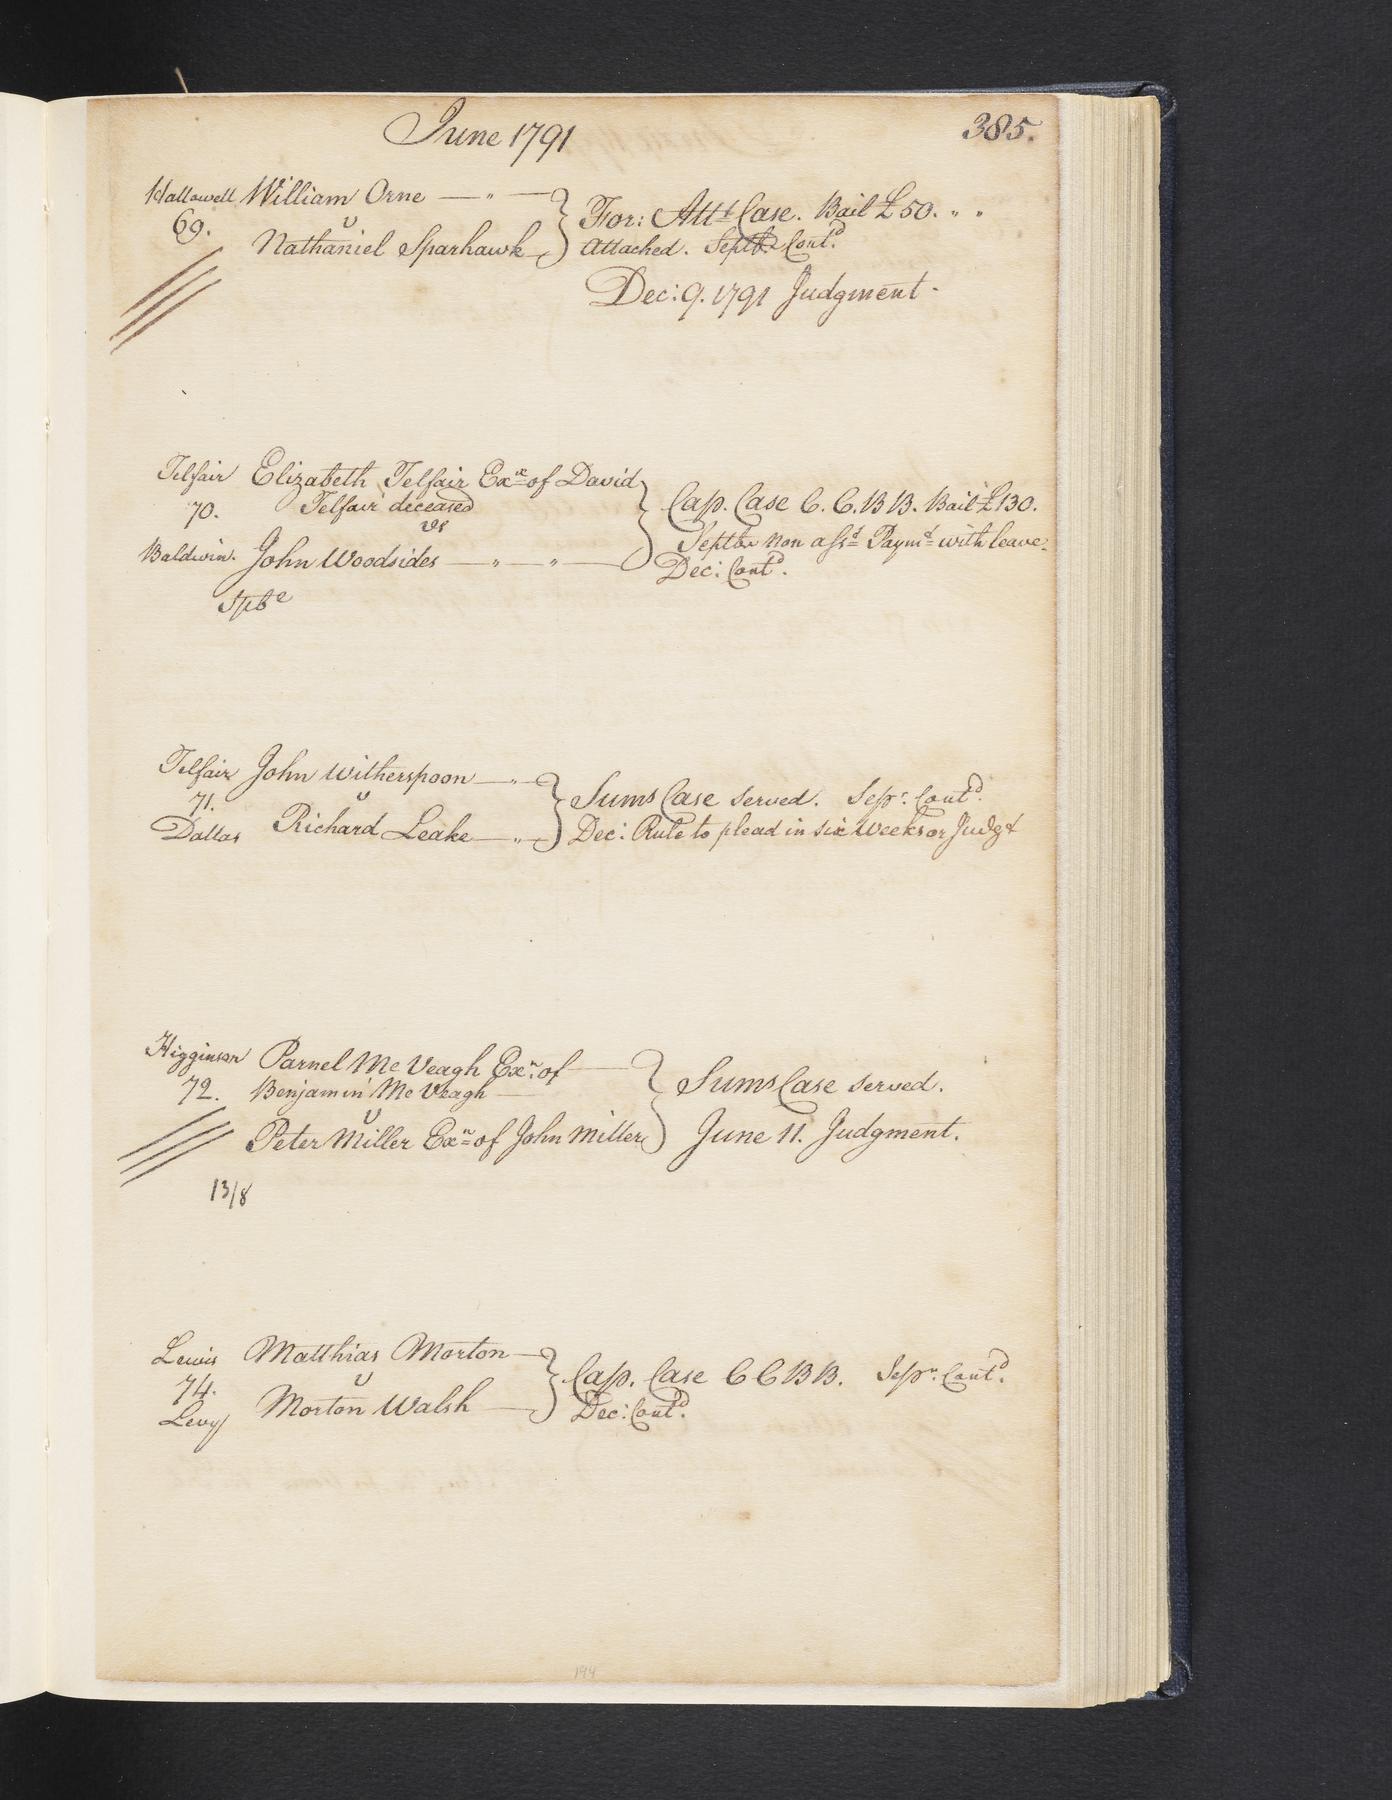 June 1791
385.
Hallowell William Orne
69.
v
Nathaniel Sparhawk
For: Attt Case. Bail £50. " "
Attached. Septr. Contd.
Dec: 9. 1791 Judgment.
Telfair Elizabeth Telfair Exx of David
70. Telfair deceased
vs
Baldwin. John Woodsides
Cap. Case C. C. B B. Bail £130.
Septbr Non assd Paymt with leave.
Dec: Contd.
Telfair John Witherspoon
71.
v
Dallas Richard Leake
Sums Case served. Sepr. Contd.
Dec: Rule to plead in six Weeks or Judgt
Higginson Parnel McVeagh Exn. of
72. Benjamin McVeagh
v
Peter Miller Exn of John Miller
Sums Case served.
June 11. Judgment.
13/8
Lewis Matthias Morton
74.
v
Levy Morton Walsh
Cap. Case C C B B. Sepr. Contd.
Dec: Contd.
194